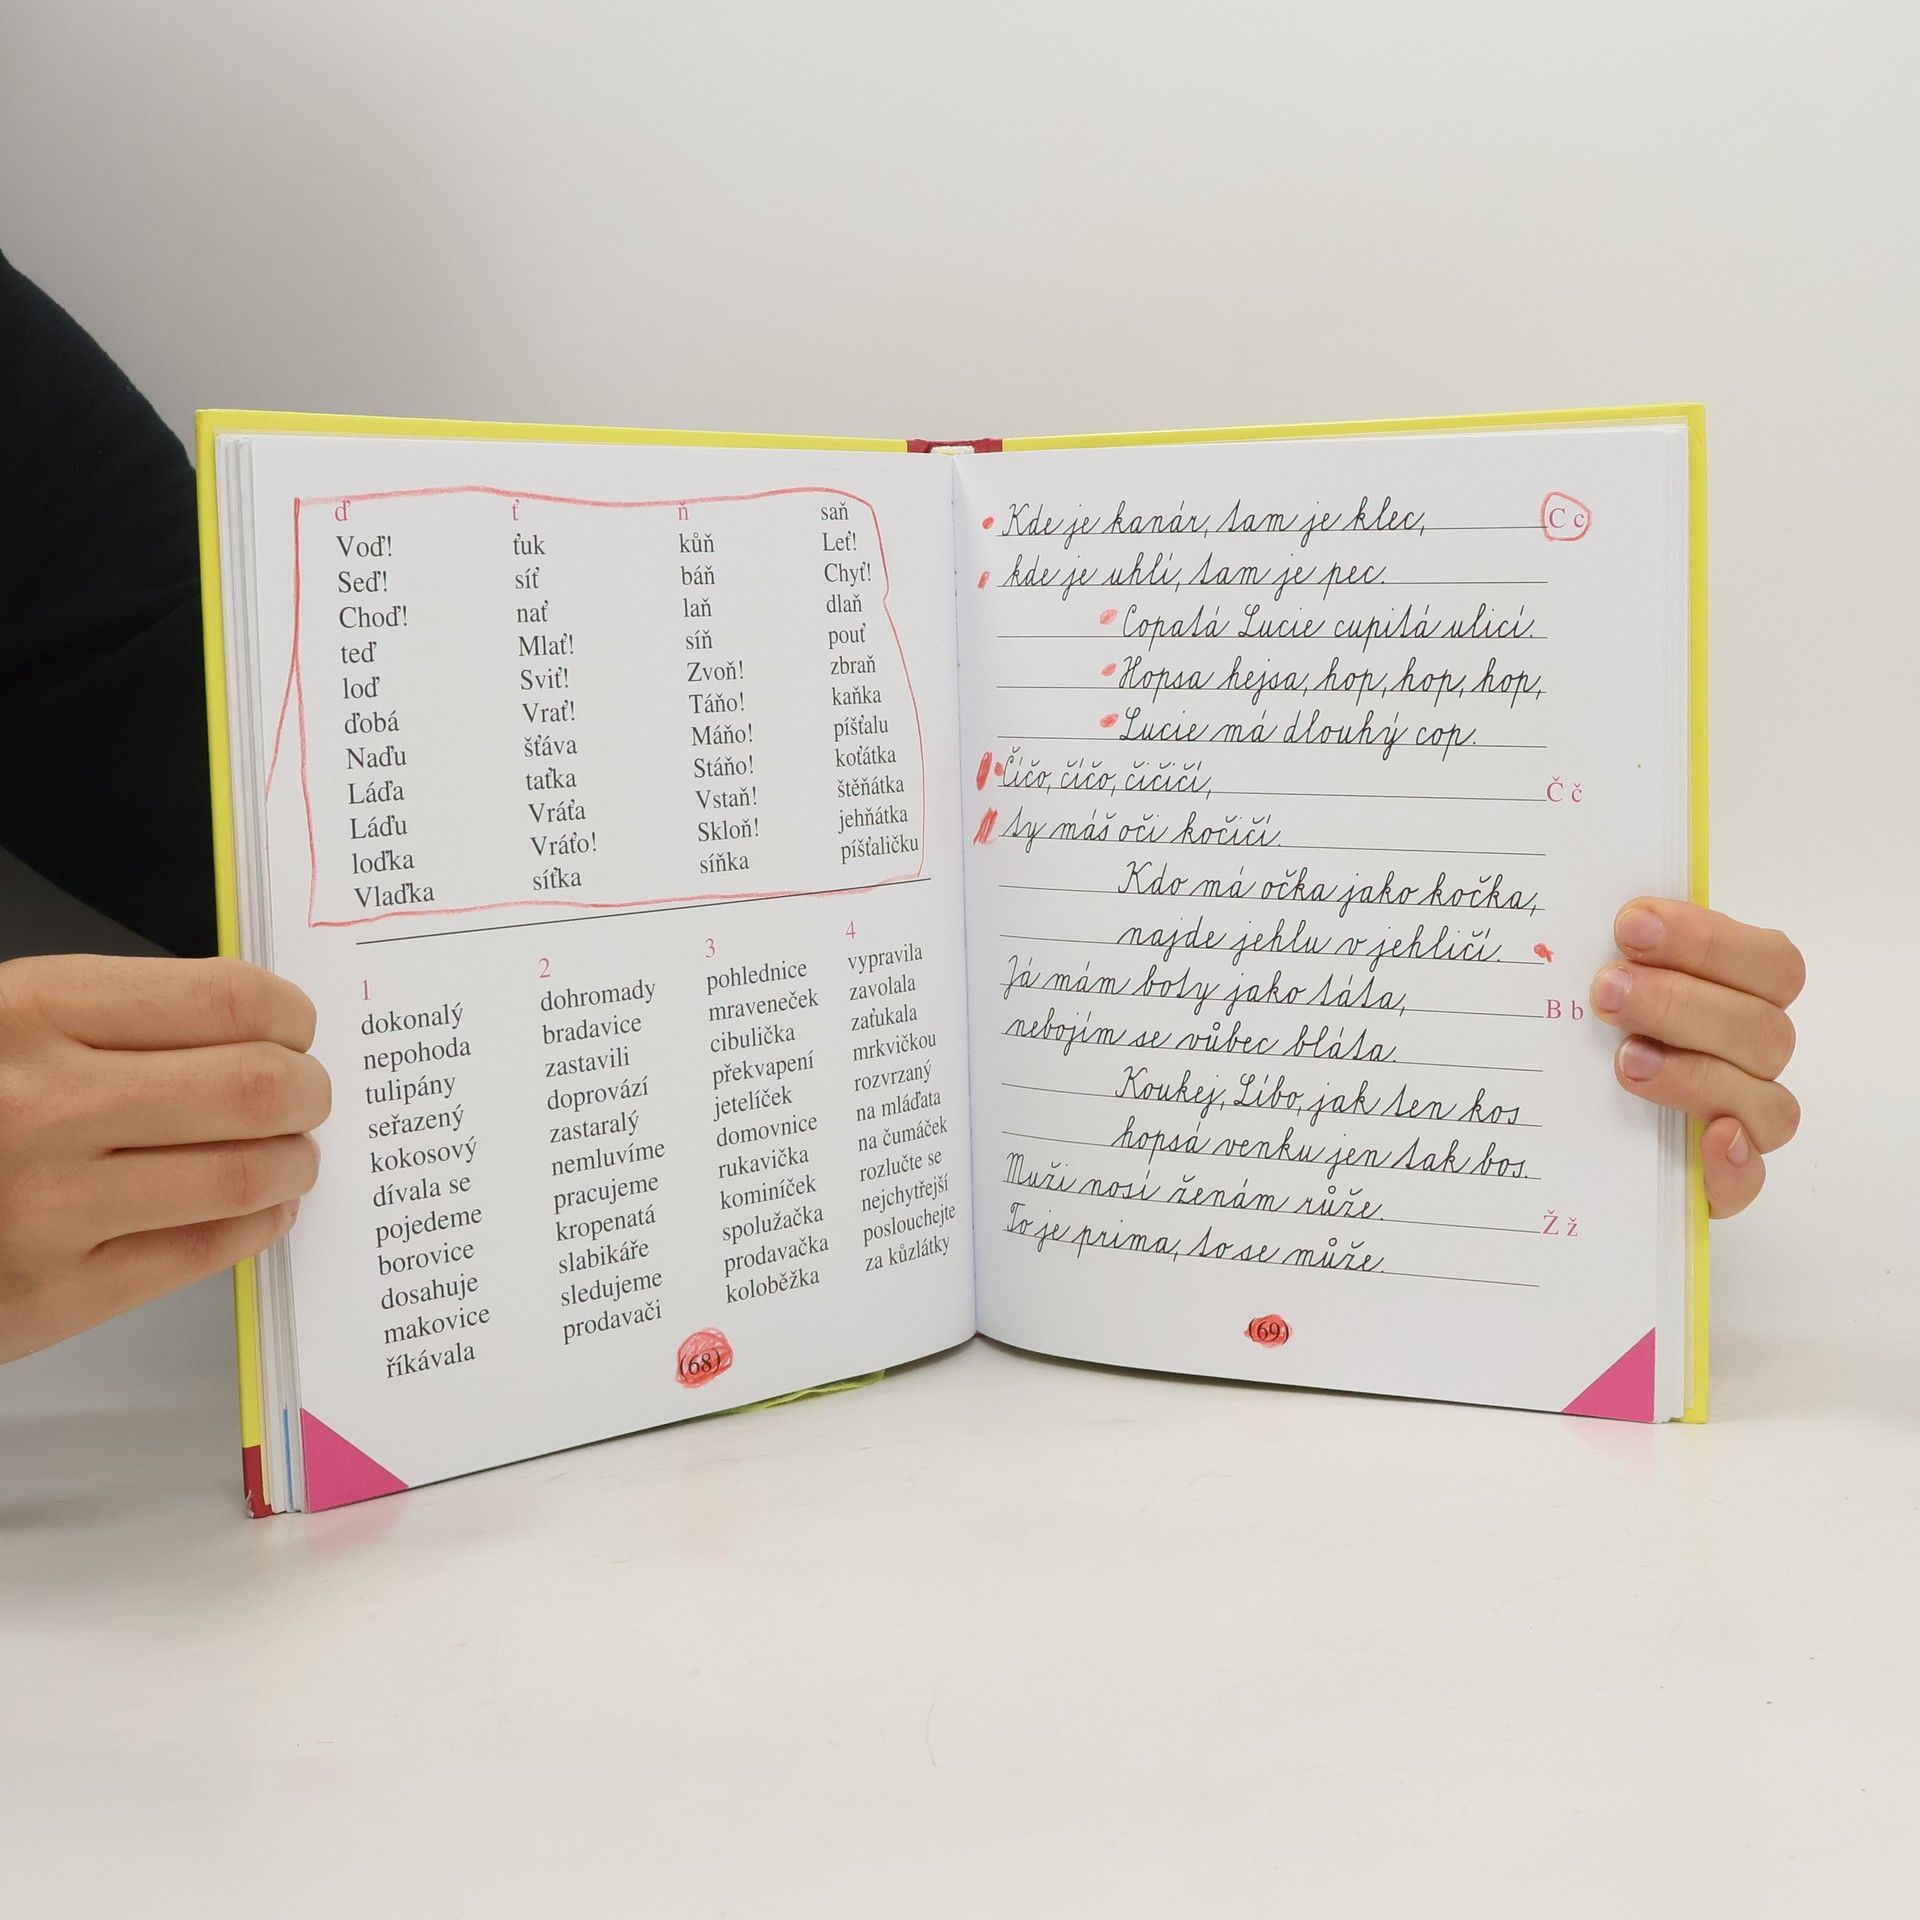 ď ť ň saň
Voď! ťuk kůň Leť!
Seď! síť báň Chyť!
Choď! nať laň dlaň
teď Mlať! síň pouť
loď Sviť! Zvoň! zbraň
ďobá Vrať! Táňo! kaňka
Naďu šťáva Máňo! píšťalu
Láďa taťka Stáňo! koťátka
Láďu Vráťa Vstaň! štěňátka
loďka Vráťo! Skloň! jehňátka
Vlaďka síťka síňka píšťaličku
1 2 3 4
dokonalý dohromady pohlednice vypravila
nepohoda bradavice mraveneček zavolala
tulipány zastavili cibulička zaťukala
seřazený doprovází překvapení mrkvičkou
kokosový zastaralý jetelíček rozvrzaný
dívala se nemluvíme domovnice na mláďata
pojedeme pracujeme rukavička na čumáček
borovice kropenatá kominíček rozlučte se
dosahuje slabikáře spolužačka nejchytřejší
makovice sledujeme prodavačka poslouchejte
říkávala prodavači koloběžka za kůzlátky
(68)
Kde je kanár, tam je klec, C c
kde je uhlí, tam je pec.
Copatá Lucie cupitá ulicí.
Hopsa hejsa, hop, hop, hop,
Lucie má dlouhý cop.
Číčo, číčo, čičičí, Č č
ty máš oči kočičí.
Kdo má očka jako kočka,
najde jehlu v jehličí.
Já mám boty jako táta, B b
nebojím se vůbec bláta.
Koukej, Líbo, jak ten kos
hopsá venku jen tak bos.
Muži nosí ženám růže. Ž ž
To je prima, to se může.
(69)